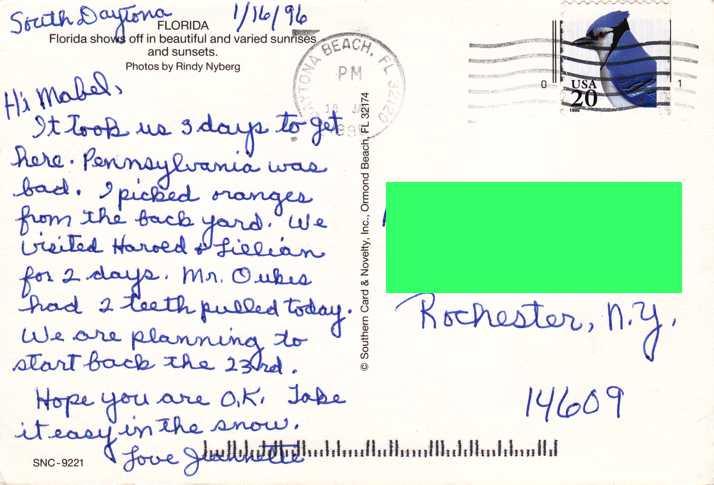 South Daytona
1/16/96
FLORIDA
Florida shows off in beautiful and varied sunrises
and sunsets.
Photos by Rindy Nyberg
Hi Mabel,
It took us 3 days to get
here. Pennsylvania was
bad. I picked oranges
from the back yard. We
visited Harold & Lillian
for 2 days. Mr. Oukes
had 2 teeth pulled today.
We are planning to
start back the 23rd.
Hope you are O.K. Take
it easy in the snow.
Love Jeannette
SNC-9221
© Southern Card & Novelty, Inc., Ormond Beach, FL 32174
DAYTONA BEACH, FL
PM
USA
20
0
1
Rochester, N.Y.
14609